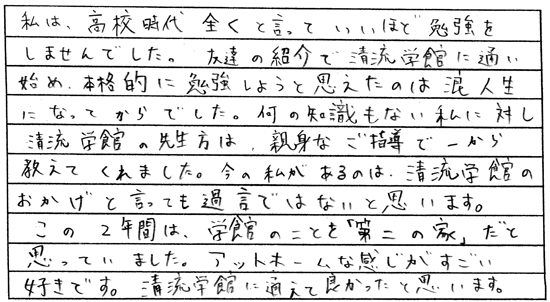 私は、高校時代 全くと言っていいほど勉強を
しませんでした。友達の紹介で清流学館に通い
始め、本格的に勉強しようと思えたのは浪人生
になってからでした。何の知識もない私に対し
清流学館の先生方は、親身なご指導で一から
教えてくれました。今の私があるのは、清流学館の
おかげと言っても過言ではないと思います。
この2年間は、学館のことを「第二の家」だと
思っていました。アットホームな感じがすごい
好きです。清流学館に通えて良かったと思います。